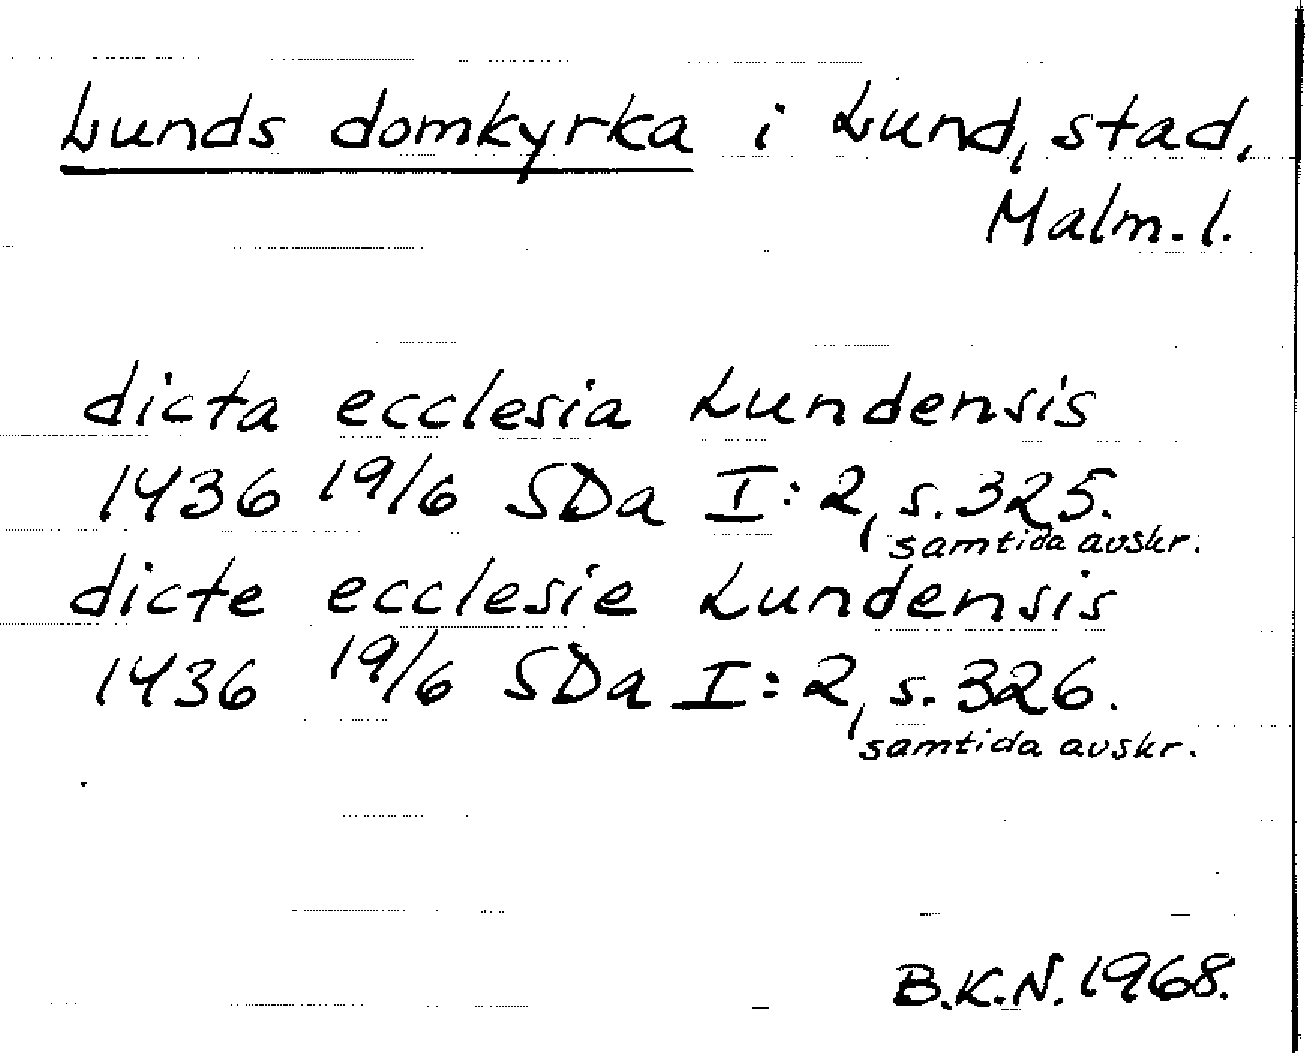 Lunds domkyrka i Lund, stad,
Malm. l.
dicta ecclesia Lundensis
1436 19/6 SDa I:2, s. 325.
samtida avskr.
dicte ecclesie Lundensis
1436 19/6 SDa I:2, s. 326.
samtida avskr.
B.K.N. 1968.